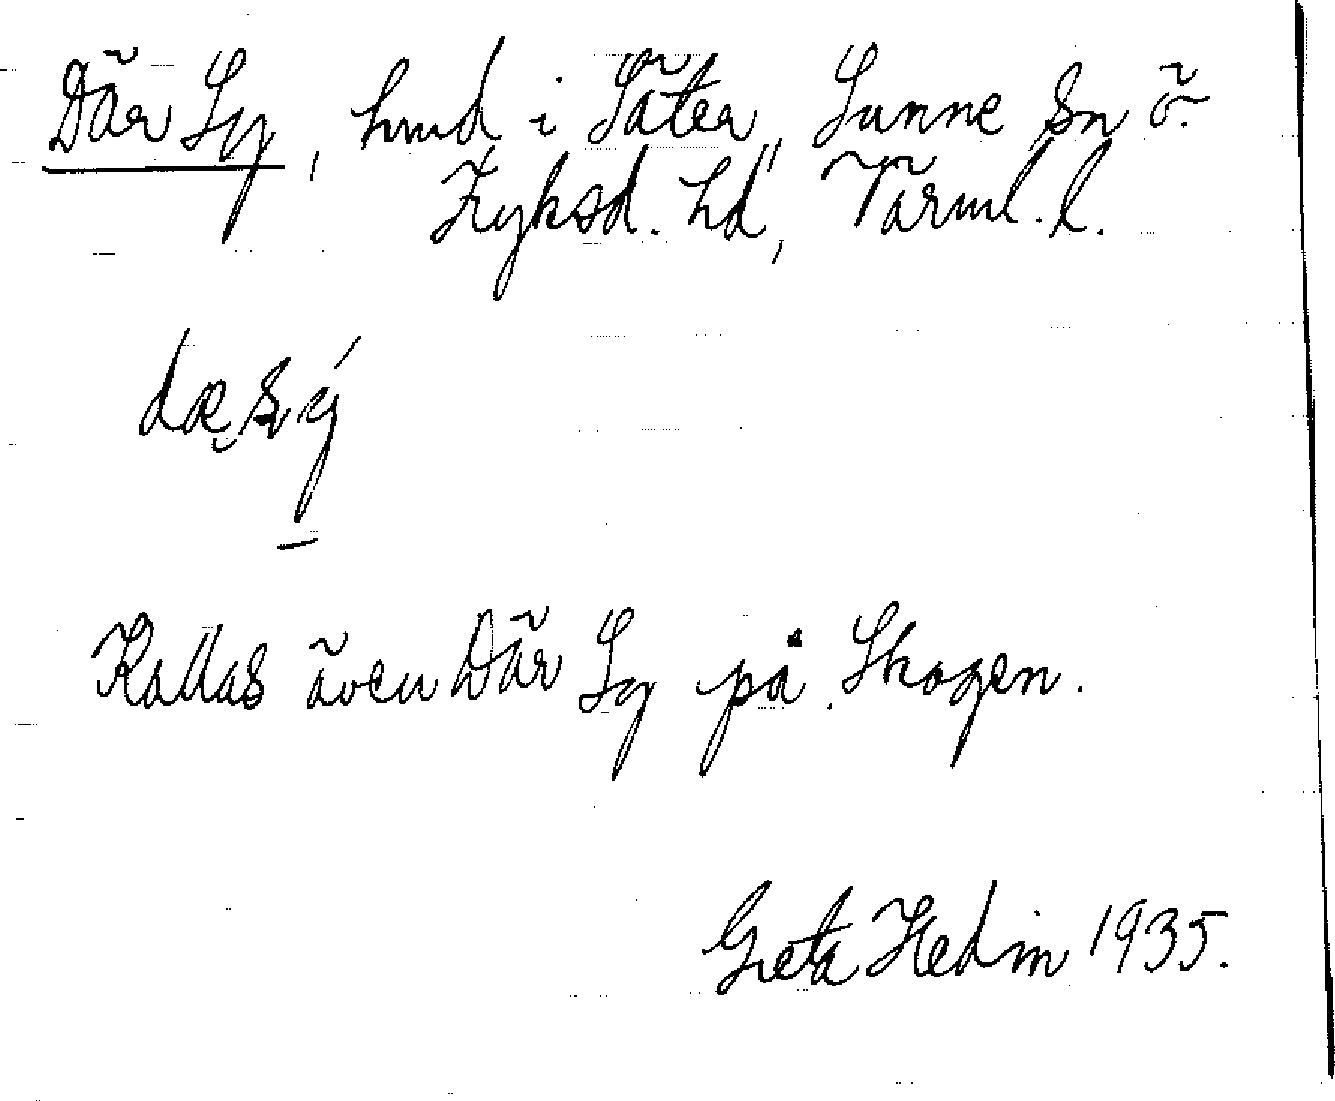 Där Sy, hmd i Säter, Sunne sn Ö.
Fryksd. hd, Värml. l.
dæsý
Kallas även Där Sy på Skogen.
Greta Hedin 1935.